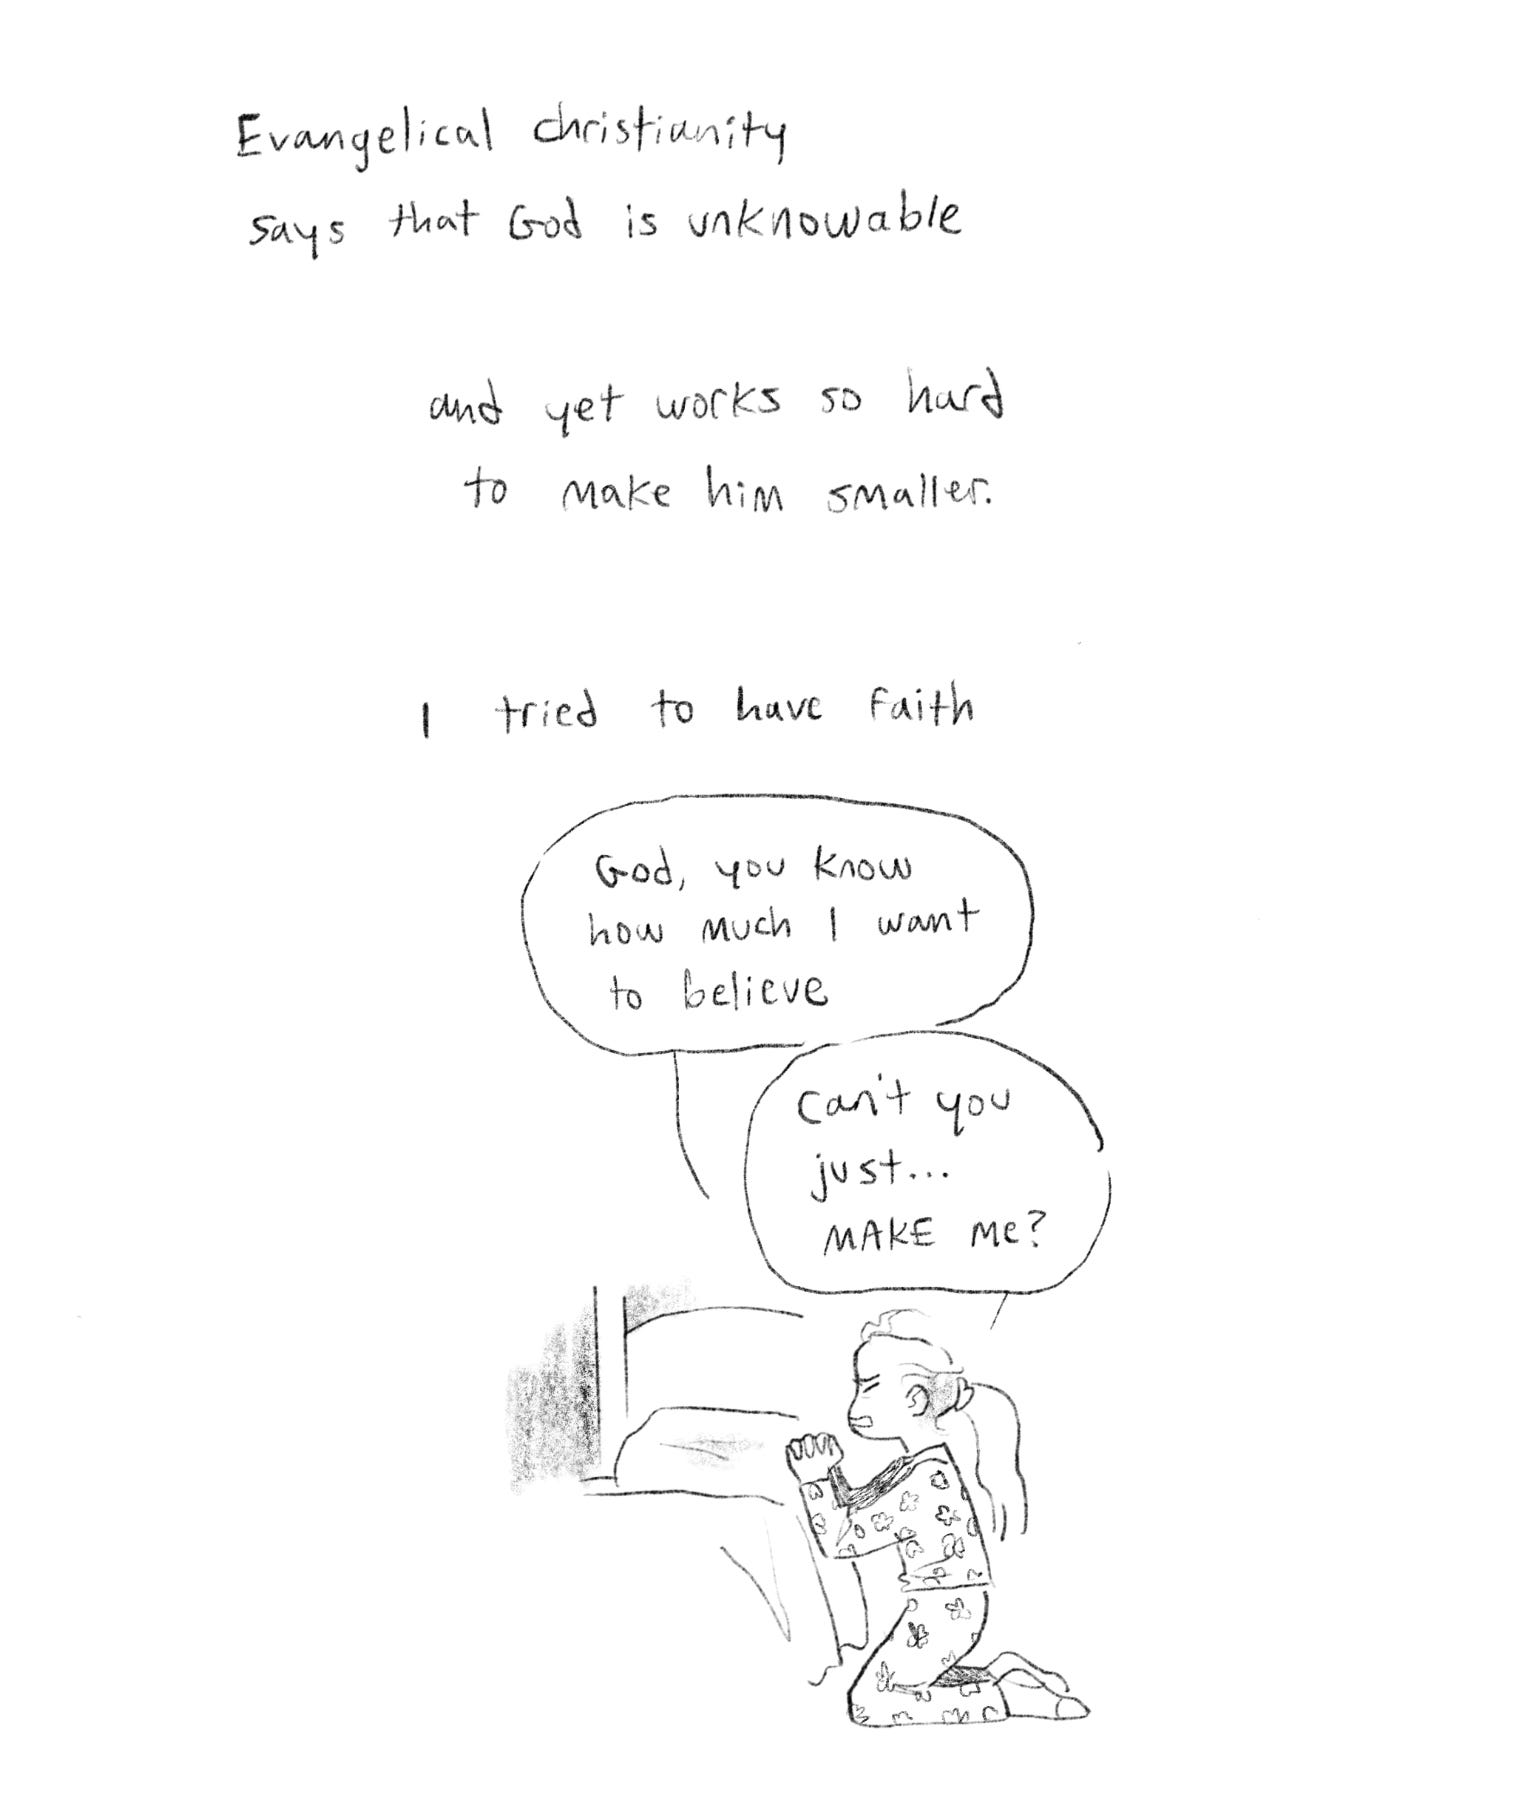 Evangelical christianity
says that God is unknowable
and yet works so hard
to make him smaller.
I tried to have faith
God, you know
how much I want
to believe
can't you
just...
MAKE me?